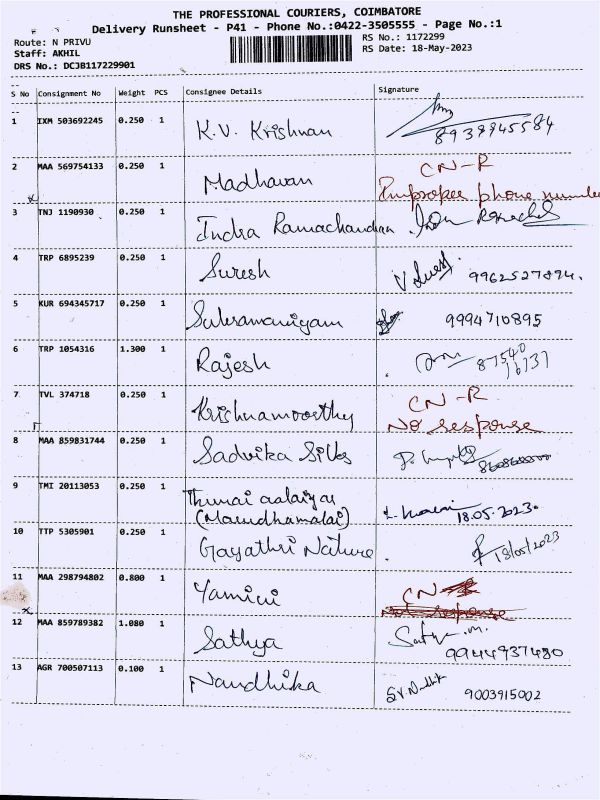 THE PROFESSIONAL COURIERS, COIMBATORE
Delivery Runsheet - P41 - Phone No.:0422-3505555 - Page No.:1
Route: N PRIVU
RS No.: 1172299
Staff: AKHIL
RS Date: 18-May-2023
DRS No.: DCJB117229901
S No Consignment No Weight PCS Consignee Details Signature
1 IXM 503692245 0.250 1 K.V. Krishnan 8939945584
2 MAA 569754133 0.250 1 Madhavan CN-R
Improper phone number
3 TNJ 1190930 0.250 1 Indra Ramachandran
4 TRP 6895239 0.250 1 Suresh V Suresh 9962527894.
5 KUR 694345717 0.250 1 Subramaniyam 9994710895
6 TRP 1054316 1.300 1 Rajesh 87540
16737
7 TVL 374718 0.250 1 Krishnamoorthy CN-R
No response
8 MAA 859831744 0.250 1 Sadvika Silks
9 TMI 20113053 0.250 1 Thunai aalaiyar
(Marudhamalai) 18.05.2023.
10 TTP 5305901 0.250 1 Gayathri Nature. 18/05/2023
11 MAA 298794802 0.800 1 Yamini CN
Not response
12 MAA 859789382 1.080 1 Sathya Satya .m.
9944937480
13 AGR 700507113 0.100 1 Nandhika S.V. Nandhik 9003915002